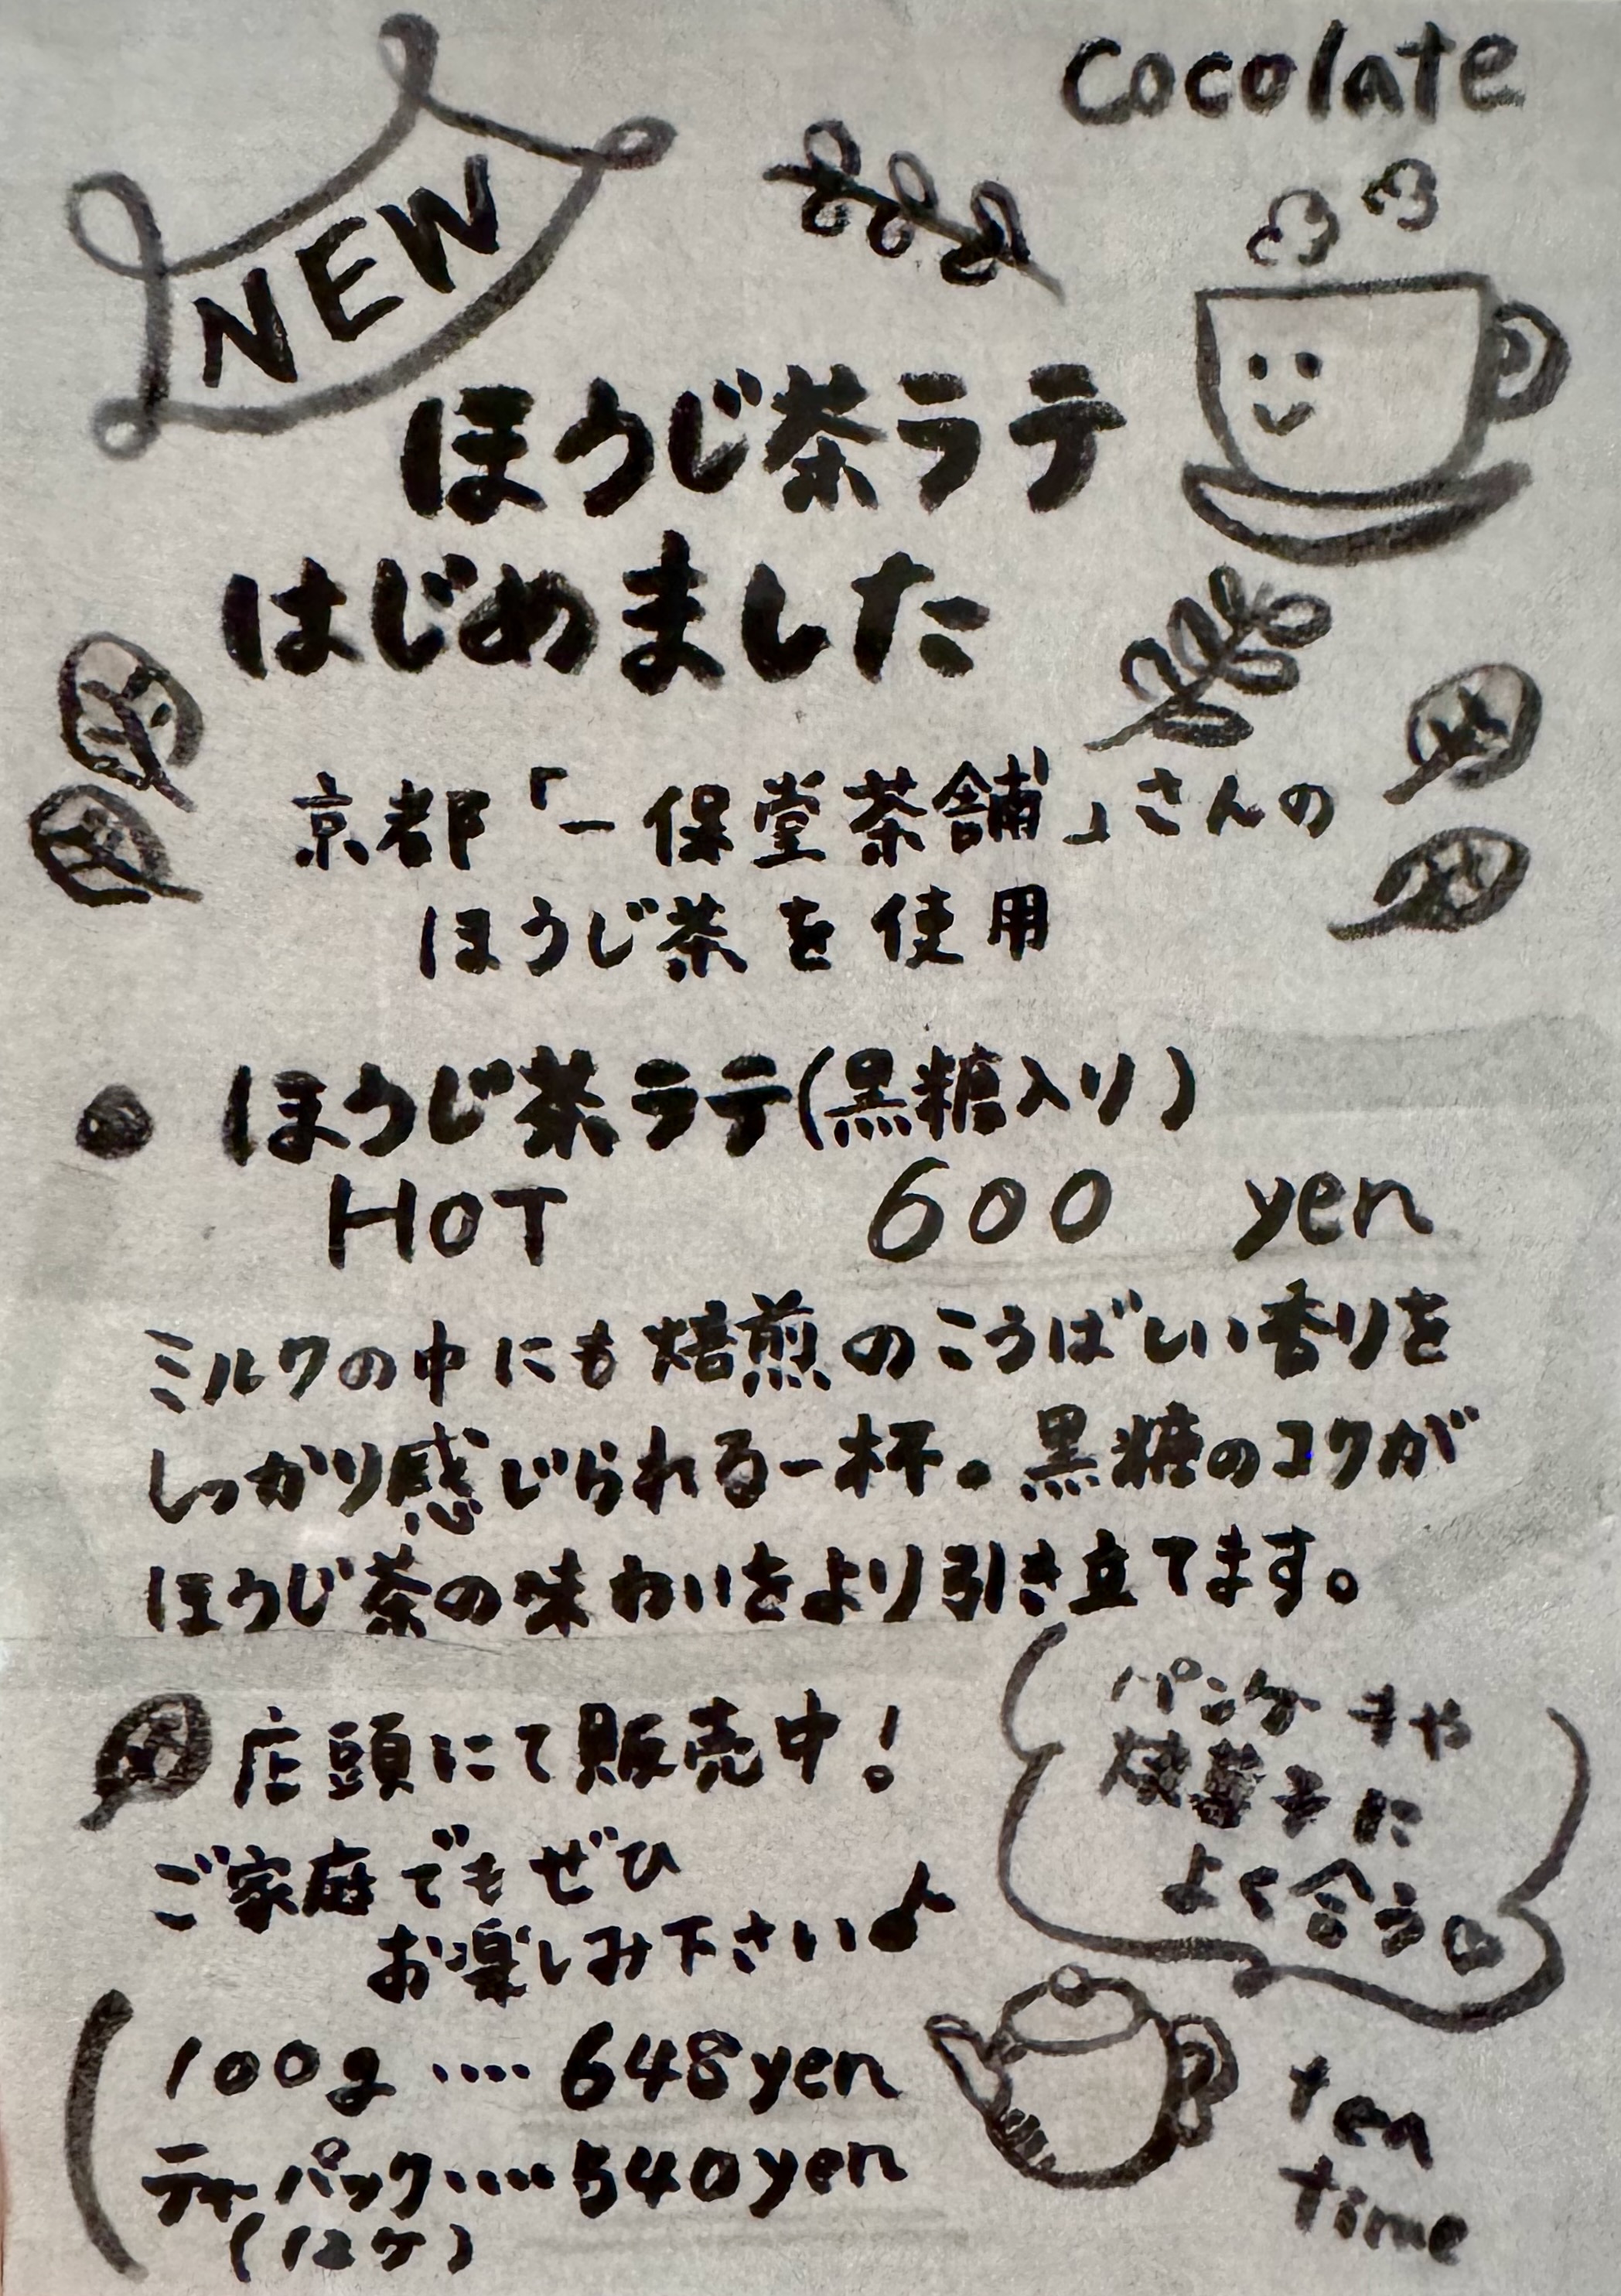 cocolate
NEW
ほうじ茶ラテ
はじめました
京都「一保堂茶舗」さんの
ほうじ茶を使用
● ほうじ茶ラテ(黒糖入り)
HOT 600 yen
ミルクの中にも焙煎のこうばしい香りを
しっかり感じられる一杯。黒糖のコクが
ほうじ茶の味わいをより引き立てます。
店頭にて販売中!
ご家庭でもぜひ
お楽しみ下さい♪
100g ‥‥ 648yen
ティーパック‥‥540yen
(12ケ)
パンケーキや
焼菓子に
よく合う♡
tea
time